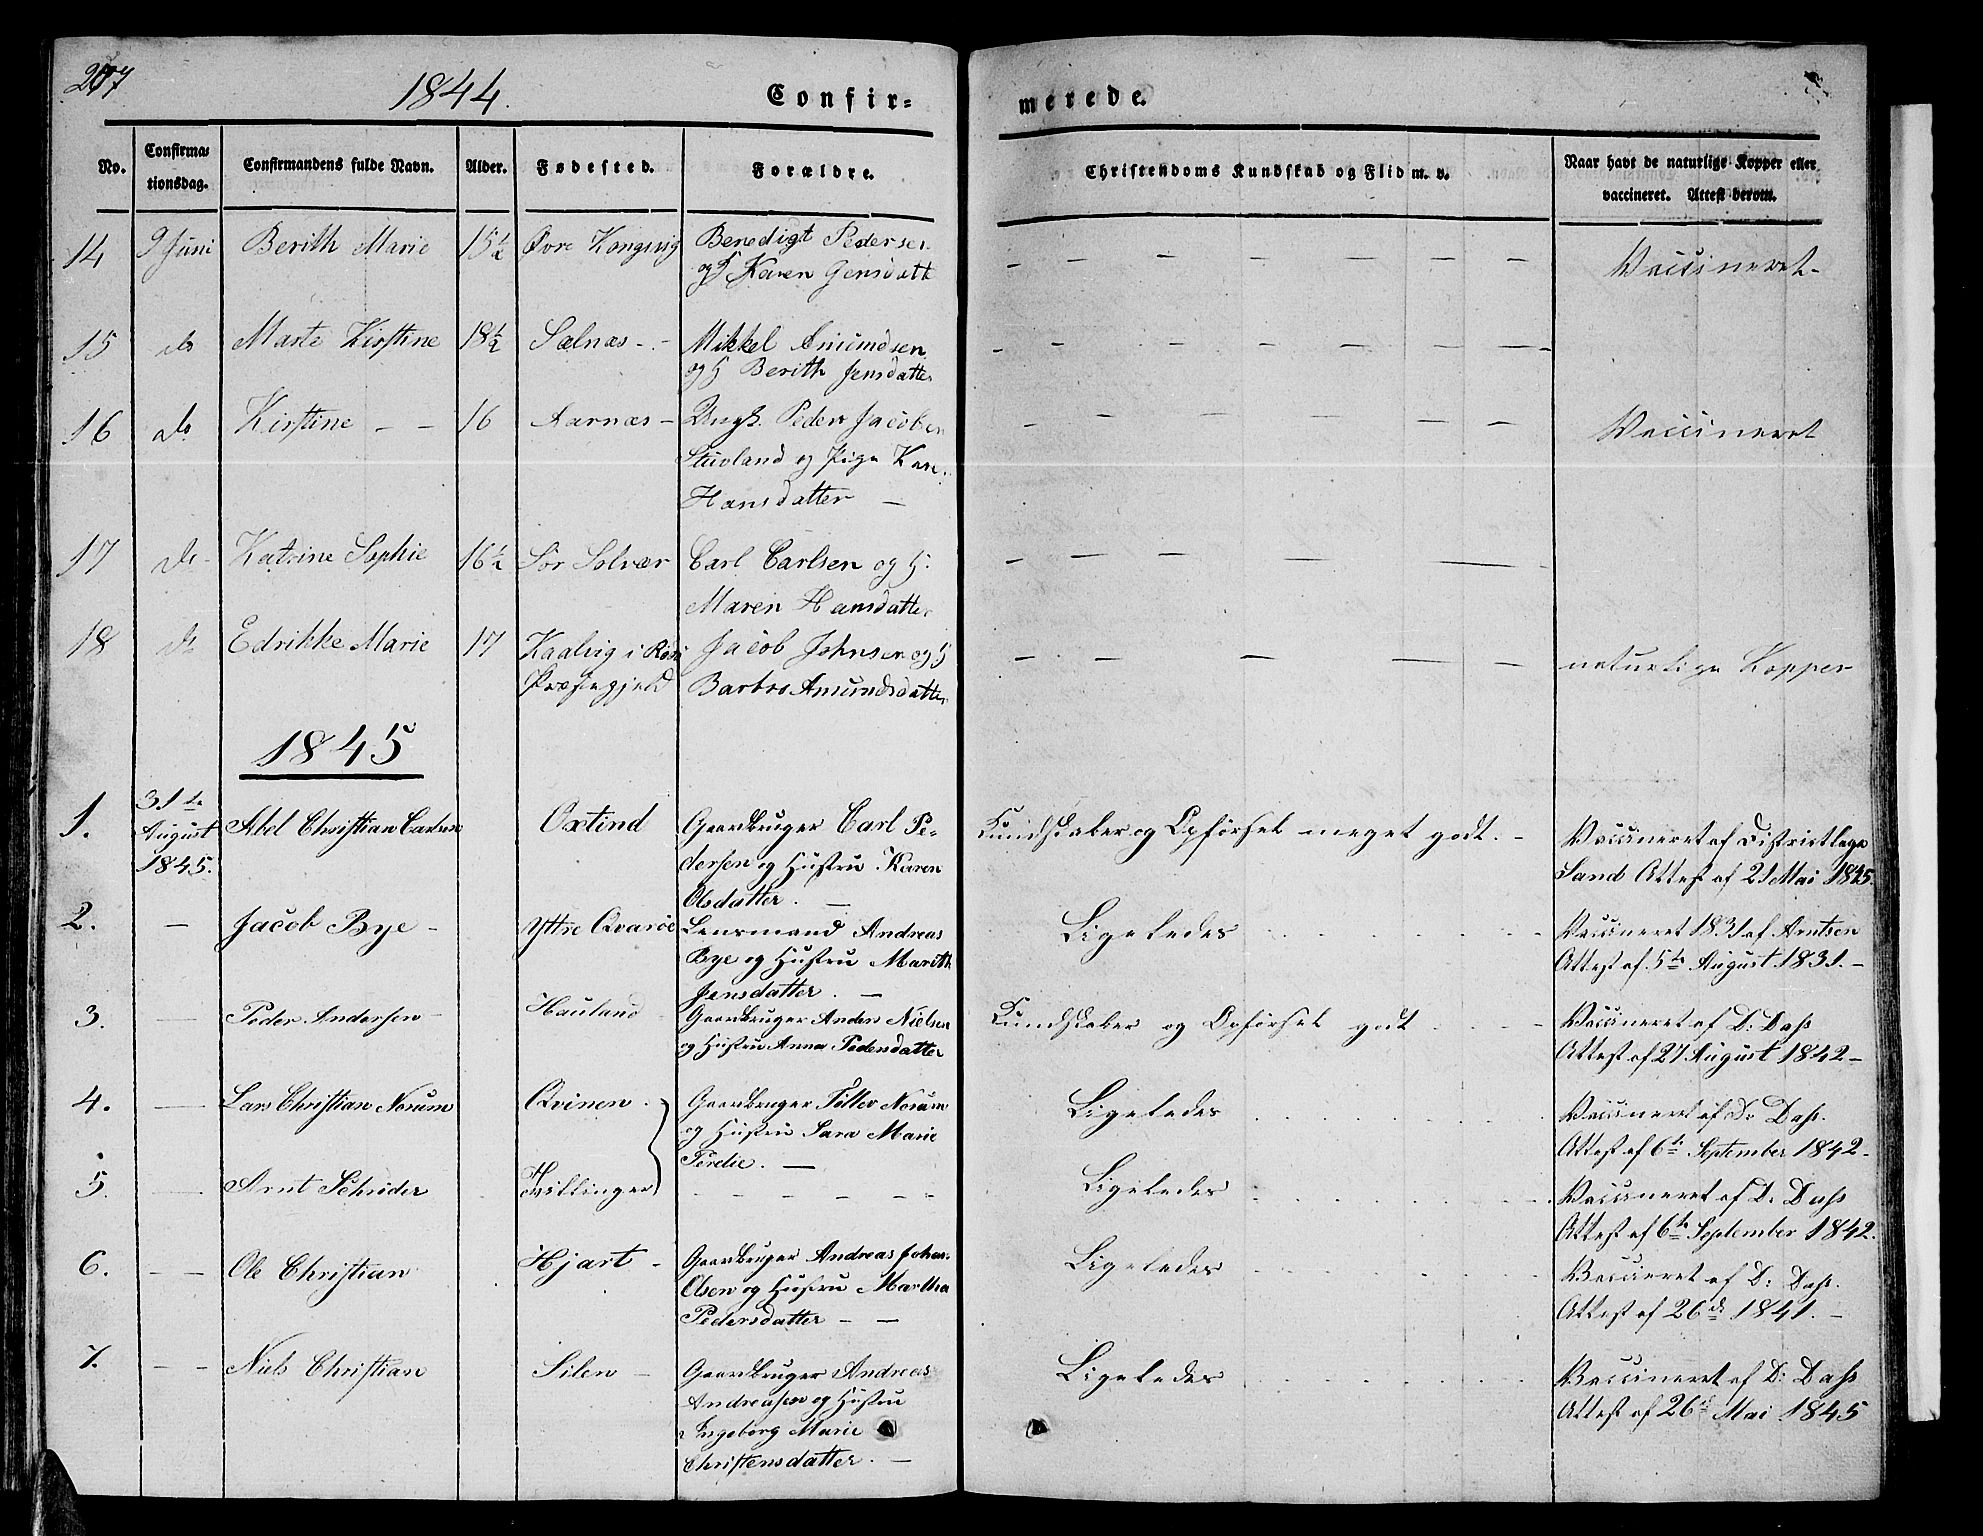 207
1844.
Confir=
merede.
No.
Confirma=
tionsdag.
Confirmandens fulde Navn.
Alder.
Fødested.
Forældre.
Christendoms Kundskab og Flid m. v.
Naar havt de naturlige Kopper eller
vaccineret. Attest derom.
14 9 Juni Berith Marie 15½ Øvre Kongsvig Benedigt Pedersen
og H Karen Jensdatt
Vaccineret-
15 do Marte Kirstine 18½ Sælnæs - - Mikkel Amundsen
og H Berith Jensdatter
16 do Kirstine - - 16 Aarnæs - Ungk. Peder Jacobsen
Stuvland og Pige Kare
Hansdatter -
Vaccineret
17 do Katrine Sophie 16½ Sør Solvær Carl Carlsen og H.
Maren Hansdatter
18 do Edrikke Marie 17 Kaalvig i
Præstegjeld
Jacob Johnsen og H
Barbro Amundsdatter
naturlige Kopper
1845
1. 31te
August
1845.
Abel Christian Carlsen Oxtind Gaardbruger Carl Pe-
dersen og Hustru Karen
Olsdatter. -
Kundskaber og Opførsel meget godt. -
Vaccineret af Districtlæge
Sand Attest af 21 Mai 1845.
2. - Jacob Bye - Yttre Qvarøe Lensmand Andreas
Bye og Hustru Marith
Jensdatter. -
Ligeledes
Vaccineret 1831 af Arntsen
Attest af 5te August 1831. -
3. - Peder Andersen - Hauland Gaardbruger Anders Nielsen
og Hustru Anna Pedersdatter
Kundskaber og Opførsel godt
Vaccineret af D: Dahl
Attest af 27 August 1842 -
4. - Lars Christian Norum Qvinen. Gaardbruger Tollev Norum
og Hustru Sara Marie
Ligeledes
Vaccineret af D: Dahl.
Attest af 6te September 1842 -
5. - Arnt Schrøder Tvillinger - - - - - -
Ligeledes
Vaccineret af D: Dahl
Attest af 6te September 1842.
6. - - Ole Christian Hjart - Gaardbruger Andreas Johan
Olsen og Hustru Martha
Pedersdatter - -
Ligeledes
Vaccineret af D: Dahl.
Attest af 26d 1841. -
7. - - Niels Christian Silen - Gaardbruger Andreas
Andreasen og Hustru
Ingeborg Marie
Christensdatter. -
Ligeledes
Vaccineret af D: Dahl
Attest af 26d Mai 1845